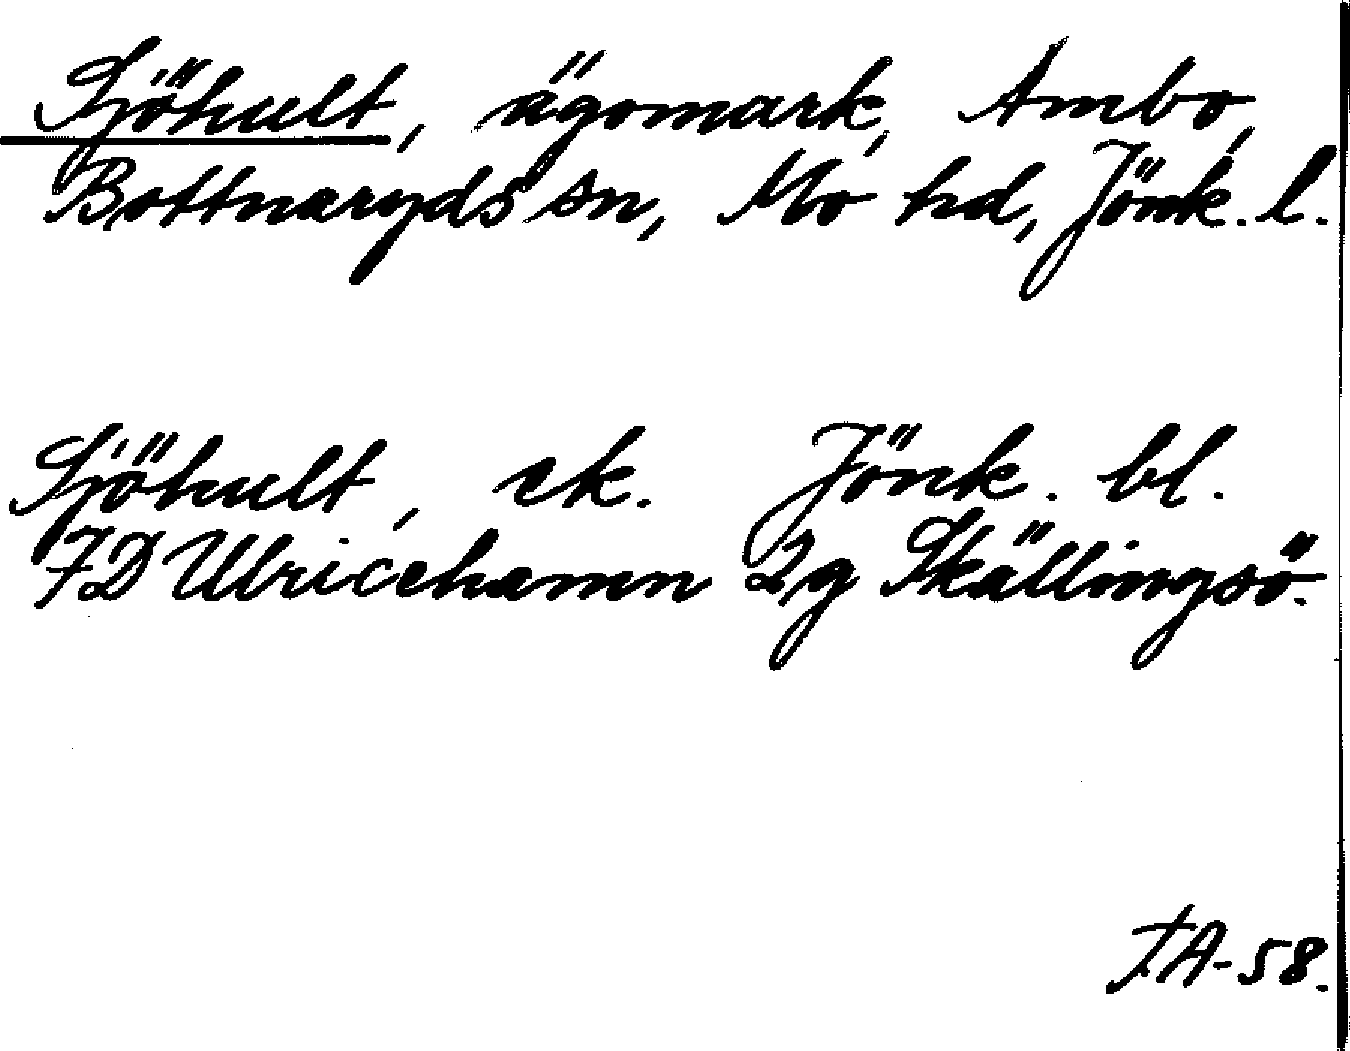 Sjöhult, ägomark, Ambo,
Bottnaryds sn, Mo hd, Jönk. l.
Sjöhult, ek. Jönk. bl.
7D Ulricehamn 2g Skällingsö.
FA-58.